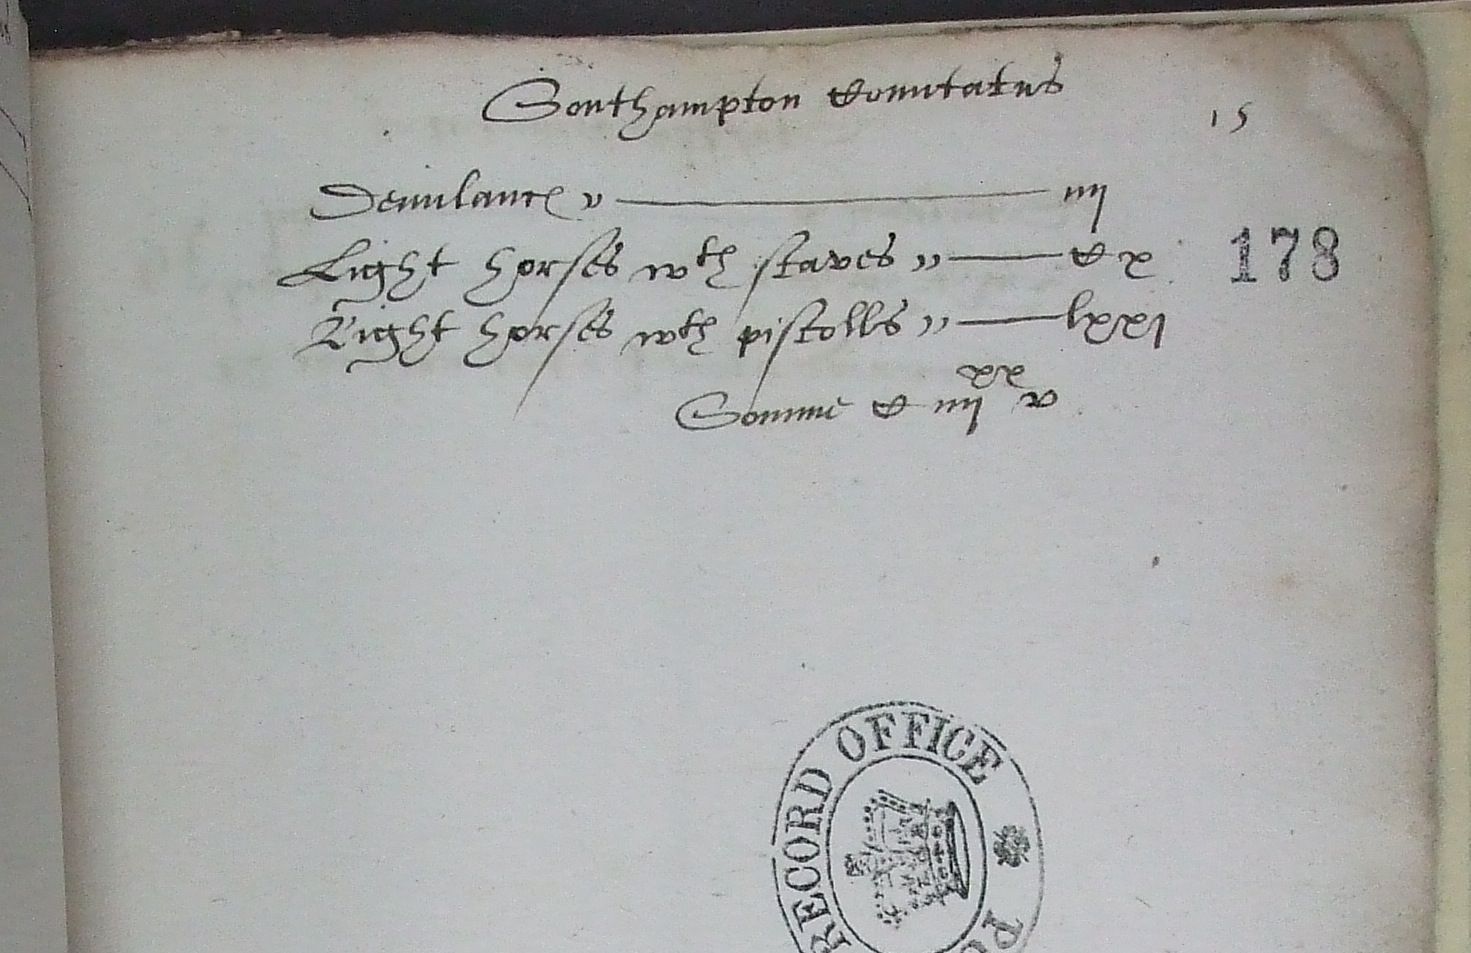 Southampton Comitatus
15
Demilances ———— iiij
Light horses wth staves ,, —— C x
178
Light horses wth pistolls ,, —— lxxi
Somme C iiijxx v
RECORD OFFICE